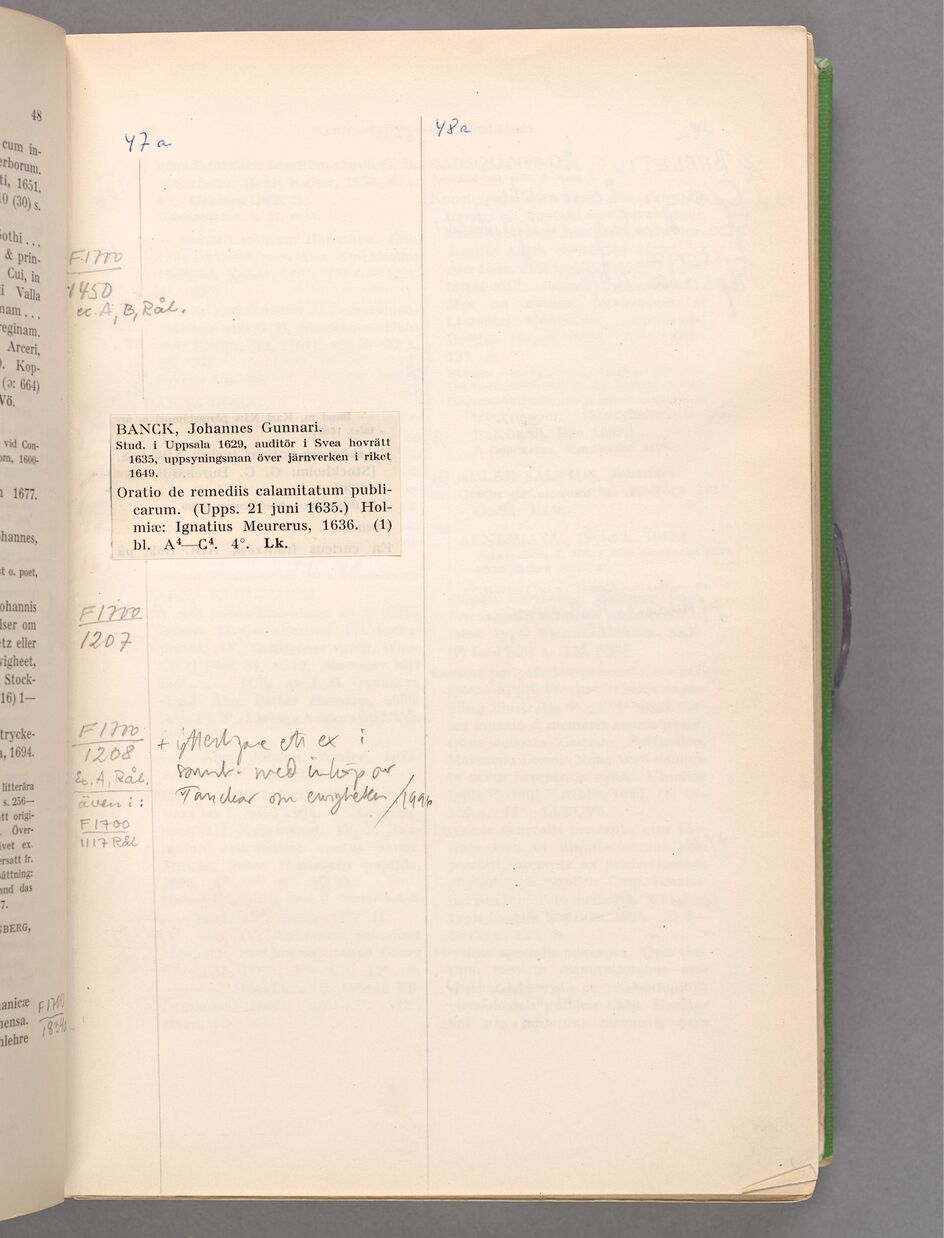 48
cum in-
erborum.
ti, 1651.
10 (30) s.
Gothi ...
& prin-
Cui, in
Valla
nam ...
reginam.
Arceri,
Kop-
(ɔ: 664)
Vö.
vid Con-
1600-
1677.
ohannes,
st o. poet,
ohannis
lser om
etz eller
vigheet,
Stock-
16) 1—
trycke-
a, 1694.
litterära
s. 256—
tt origi-
Över-
ivet ex.
ersatt fr.
sättning:
und das
7.
NBERG,
anicæ
mensa.
nlehre
47a
48a
F.1700
1450
ex. A, B, Rål.
BANCK, Johannes Gunnari.
Stud. i Uppsala 1629, auditör i Svea hovrätt
1635, uppsyningsman över järnverken i riket
1649.
Oratio de remediis calamitatum publi-
carum. (Upps. 21 juni 1635.) Hol-
miæ: Ignatius Meurerus, 1636. (1)
bl. A⁴—C⁴. 4°. Lk.
F1700
1207
F1700
1208
Ex. A, Rål.
även i:
F1700
1117 Rål
+ ytterligare ett ex i
samb. med inköp av
Tanckar om ewigheten /1996
F1700